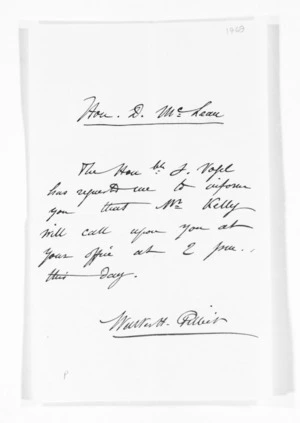 1969
Hon. D. McLean
The Honble J. Vogel
has requested me to inform
you that Mr Kelly
will call upon you at
your office at 2 pm.
this day.
Walter H. Pilliet
P